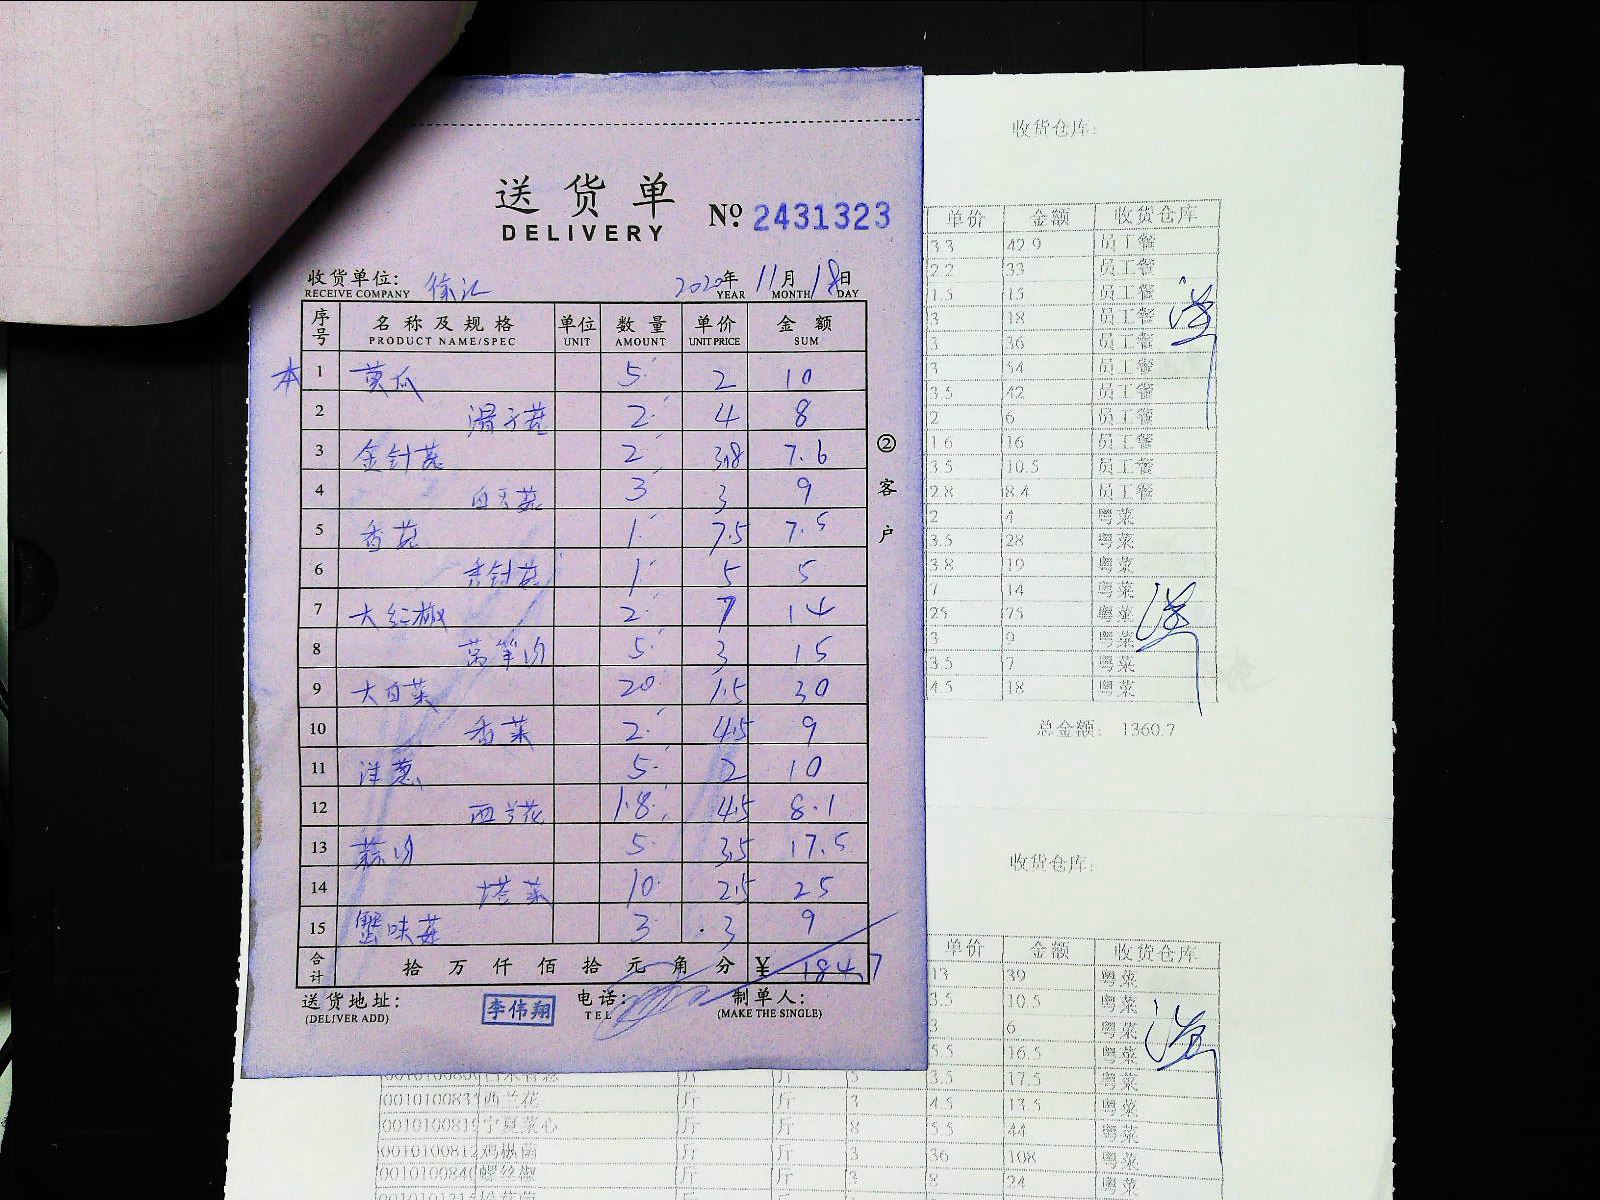 送货单
DELIVERY
№ 2431323
收货单位: 徐汇 2020年11月18日
RECEIVE COMPANY YEAR MONTH DAY
序号 名称及规格 单位 数量 单价 金额
PRODUCT NAME/SPEC UNIT AMOUNT UNIT PRICE SUM
本 1 黄瓜 5 2 10
2 滑子菇 2 4 8
3 金针菇 2 3.8 7.6
4 白玉菇 3 3 9
5 香菇 1 7.5 7.5
6 1 5 5
7 大红椒 2 7 14
8 莴笋 5 3 15
9 大白菜 20 1.5 30
10 香菜 2 4.5 9
11 洋葱 5 2 10
12 西兰花 1.8 4.5 8.1
13 5 3.5 17.5
14 塔菜 10 2.5 25
15 蟹味菇 3 3 9
合计 拾万仟佰拾元角分 ¥ 184.7
送货地址: 李伟翔 电话: 制单人:
(DELIVER ADD) TEL (MAKE THE SINGLE)
②客户
收货仓库:
单价 金额 收货仓库
3.3 42.9 员工餐
2.2 33 员工餐
1.5 15 员工餐
3 18 员工餐
3 36 员工餐
3 54 员工餐
3.5 42 员工餐
2 6 员工餐
1.6 16 员工餐
3.5 10.5 员工餐
2.8 8.4 员工餐
2 4 粤菜
3.5 28 粤菜
3.8 19 粤菜
7 14 粤菜
25 75 粤菜
3 9 粤菜
3.5 7 粤菜
4.5 18 粤菜
总金额: 1360.7
收货仓库:
单价 金额 收货仓库
13 39 粤菜
3.5 10.5 粤菜
3 6 粤菜
5.5 16.5 粤菜
3.5 17.5 粤菜
西兰花 斤 斤 3 4.5 13.5 粤菜
宁夏菜心 斤 斤 8 5.5 44 粤菜
鸡枞菌 斤 斤 3 36 108 粤菜
螺丝椒 斤 斤 3 8 24 粤菜